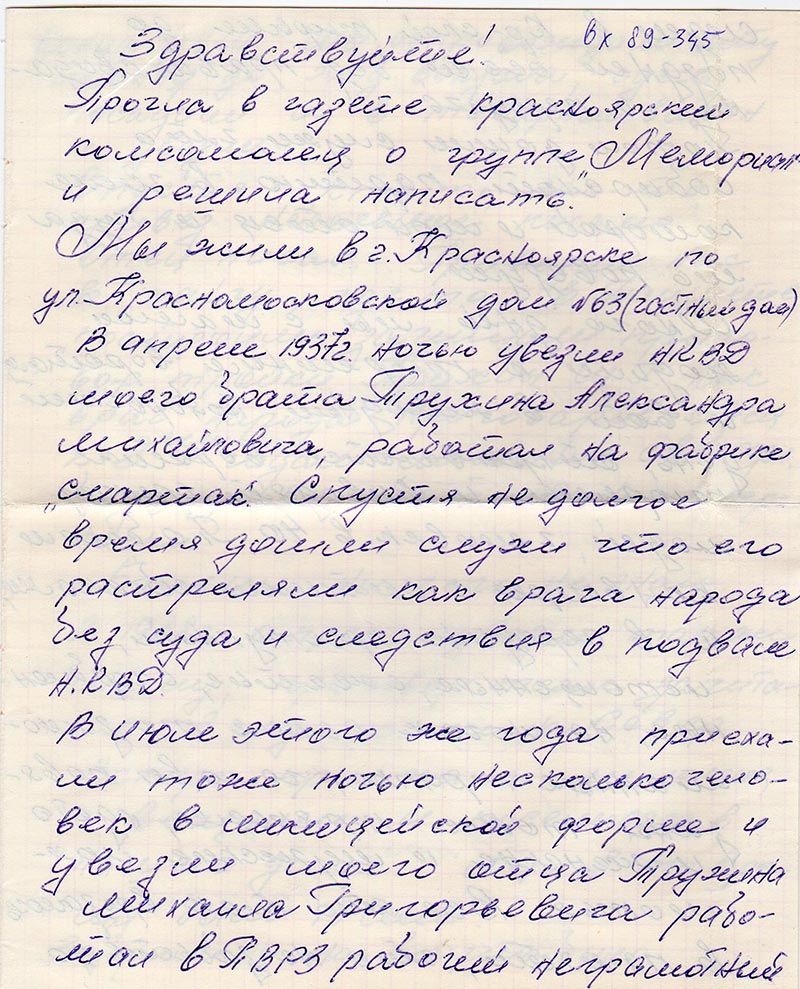 вх 89-345
Здравствуйте!
Прочла в газете красноярский
комсомолец о группе "Мемориал"
и решила написать.
Мы жили в г. Красноярске по
ул. Красномосковской дом №63 (частный дом)
В апреле 1937г. ночью увезли НКВД
моего брата Трухина Александра
Михайловича, работал на фабрике
"спартак. Спустя не долгое
время дошли слухи что его
растреляли как врага народа
без суда и следствия в подвале
Н.КВД.
В июле этого же года приеха-
ли тоже ночью несколько чело-
век в милицейской форме и
увезли моего отца Трухина
Михаила Григорьевича рабо-
тал в ПВРЗ рабочий неграмотный